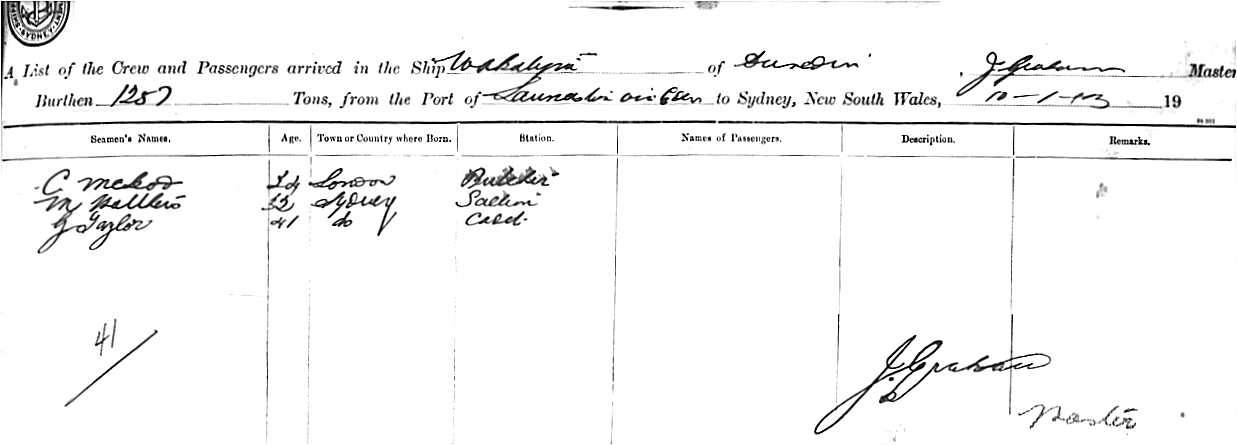 SYDNEY
A LIST OF THE CREW AND PASSENGERS ARRIVED IN THE SHIP Wakatipu OF Dunedin J Graham MASTER
BURTHEN 1257 TONS, FROM THE PORT OF Launceston via Eden TO SYDNEY, NEW SOUTH WALES, 10-1-03 19
Seamen's Names. Age. Town or Country where Born. Station. Names of Passengers. Description. Remarks.
C McLeod London Butcher
M 32 Sydney
G Taylor 41 do Cadet
41
J. Graham
Master